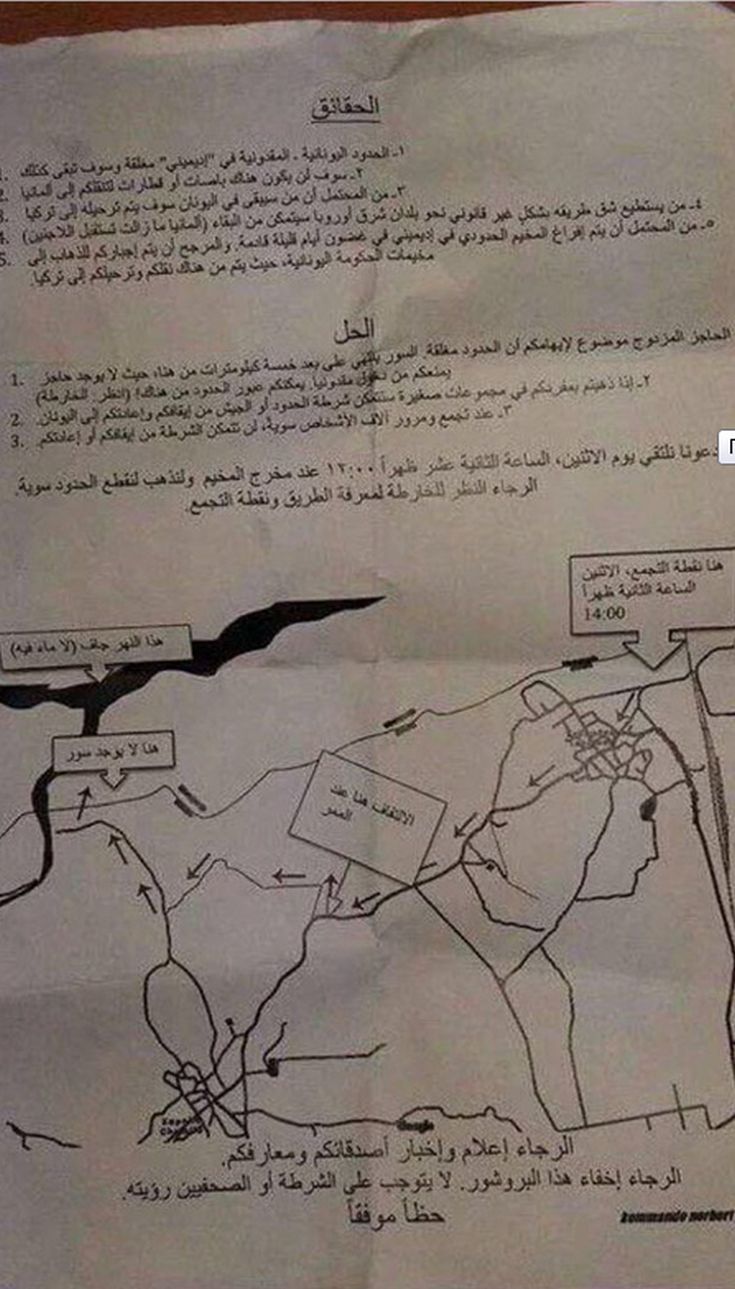 الحقائق
١- الحدود اليونانية - المقدونية في "إديميني" مغلقة وسوف تبقى كذلك .1
٢- سوف لن يكون هناك باصات أو قطارات لتنقلكم إلى ألمانيا .2
٣- من المحتمل أن من سيبقى في اليونان سوف يتم ترحيله إلى تركيا .3
٤- من يستطيع شق طريقه بشكل غير قانوني نحو بلدان شرق أوروبا سيتمكن من البقاء (ألمانيا ما زالت تستقبل اللاجئين) .4
٥- من المحتمل أن يتم إفراغ المخيم الحدودي في إديميني في غضون أيام قليلة قادمة. والمرجح أن يتم إجباركم للذهاب إلى .5
مخيمات الحكومة اليونانية، حيث يتم من هناك نقلكم وترحيلكم إلى تركيا.
الحل
الحاجز المزدوج موضوع لإيهامكم أن الحدود مغلقة. السور ينتهي على بعد خمسة كيلومترات من هنا، حيث لا يوجد حاجز .1
يمنعكم من دخول مقدونيا. يمكنكم عبور الحدود من هناك! (انظر الخارطة)
٢- إذا ذهبتم بمفردكم في مجموعات صغيرة ستتمكن شرطة الحدود أو الجيش من إيقافكم وإعادتكم إلى اليونان. .2
٣- عند تجمع ومرور آلاف الأشخاص سوية، لن تتمكن الشرطة من إيقافكم أو إعادتكم. .3
دعونا نلتقي يوم الاثنين، الساعة الثانية عشر ظهراً ١٢:٠٠ عند مخرج المخيم ولنذهب لنقطع الحدود سوية.
الرجاء النظر للخارطة لمعرفة الطريق ونقطة التجمع.
هنا نقطة التجمع، الاثنين
الساعة الثانية ظهراً
14:00
هذا النهر جاف (لا ماء فيه)
هنا لا يوجد سور
الالتفاف هنا عند
الممر
Google
الرجاء إعلام وإخبار أصدقائكم ومعارفكم.
الرجاء إخفاء هذا البروشور. لا يتوجب على الشرطة أو الصحفيين رؤيته.
حظاً موفقاً
kommando norbert